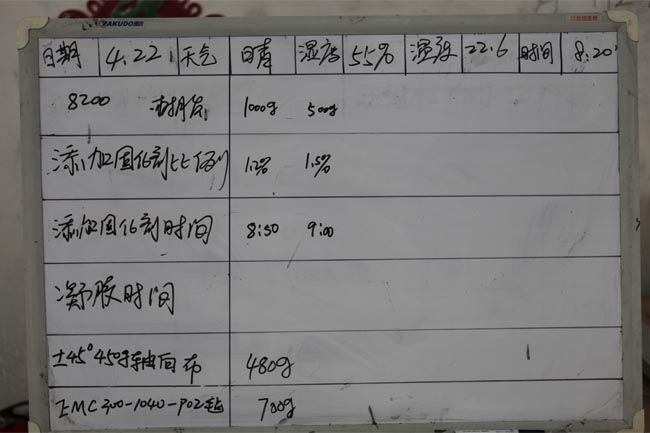 YAKUDO
日期 4.22 天气 日青 湿度 55% 温度 22.6 时间 8:20
8200 树脂 1000g 500g
添加固化剂比例 1.2% 1.5%
添加固化剂时间 8:50 9:00
凝胶时间
±45° 450g轴向布 480g
EMC300-1040-P02毡 700g